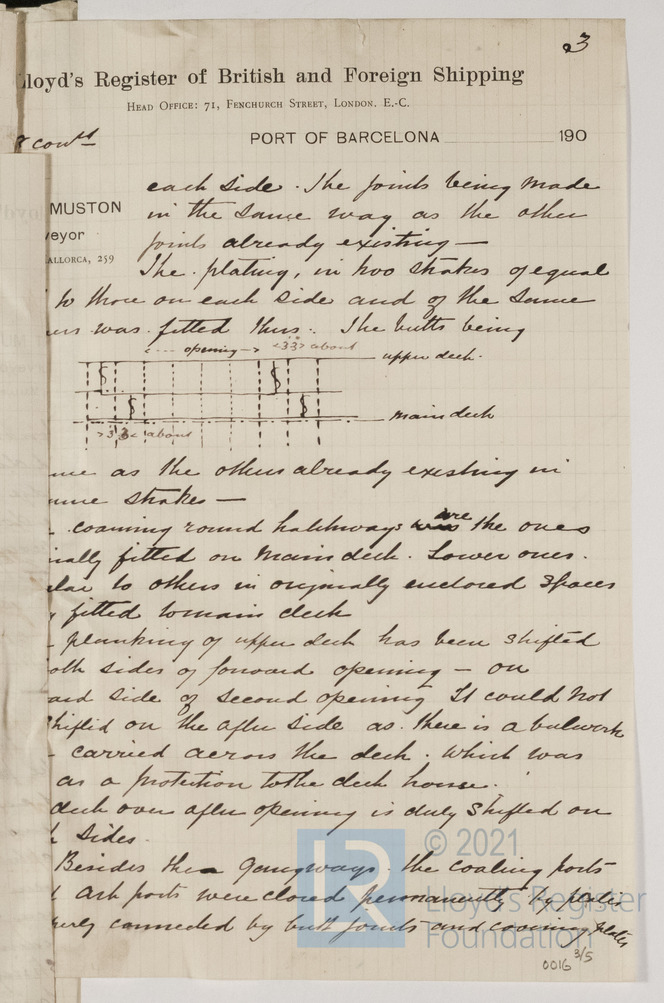 3
loyd's Register of British and Foreign Shipping
Head Office: 71, Fenchurch Street, London. E.-C.
contd
PORT OF BARCELONA 190
MUSTON
veyor
ALLORCA, 259
each side. The joints being made
in the same way as the other
joints already existing —
The plating, in two strakes of equal
to those on each side and of the same
was fitted thus: The butts being
opening <33> about
upper deck.
main deck
>33< about
as the others already existing in
strakes —
coaming round hatchways are the ones
nally fitted on main deck. Lower ones.
lar to others in originally enclosed spaces
fitted to main deck
planking of upper deck has been shifted
oth sides of forward opening — on
ard side of second opening It could not
shifted on the after side as there is a bulwark
carried across the deck. which was
as a protection to the deck house.
deck over after opening is duly shifted on
h sides.
Besides the gangways. the coaling ports
ash ports were closed permanently by plates
erly connected by butt joints and covering plates
0016 3/5
LR
© 2021
Lloyd's Register
Foundation